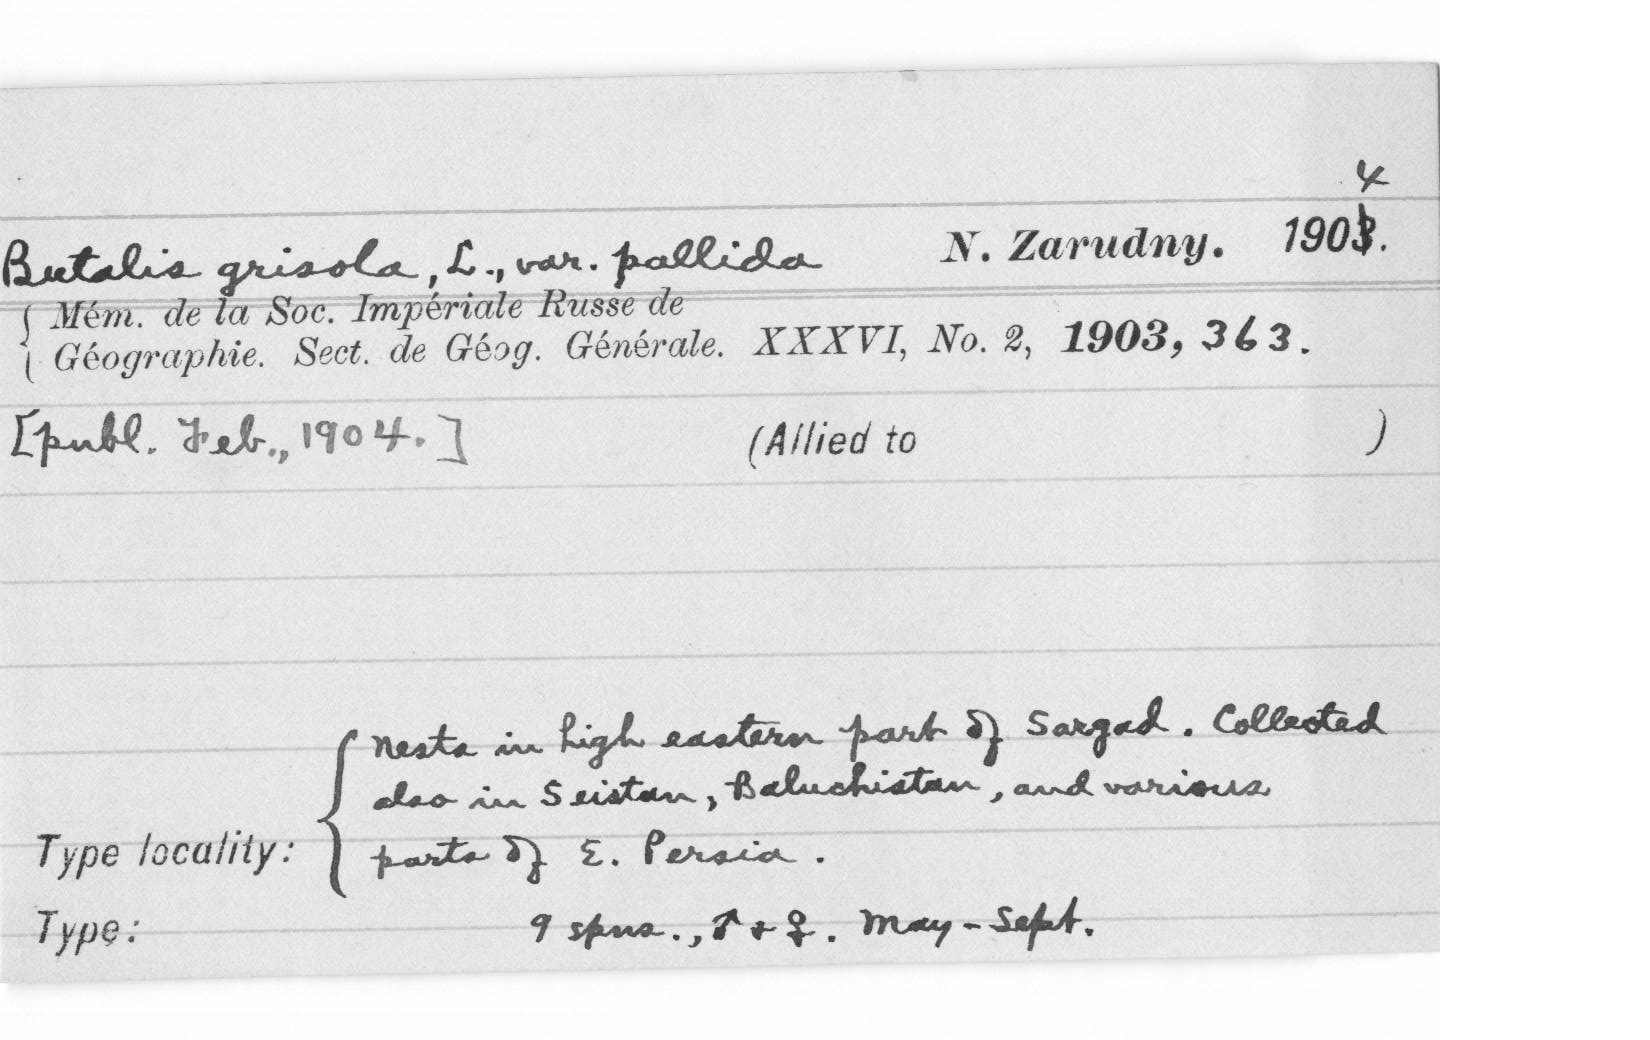 4
Butalis grisola, L., var. pallida N. Zarudny. 1903.
Mém. de la Soc. Impériale Russe de
Géographie. Sect. de Géog. Générale. XXXVI, No. 2, 1903, 363.
[publ. Feb., 1904.] (Allied to )
Nests in high eastern part of Sargad. Collected
also in Seistan, Baluchistan, and various
Type locality: parts of E. Persia.
Type: 9 spns., ♂ + ♀. May - Sept.